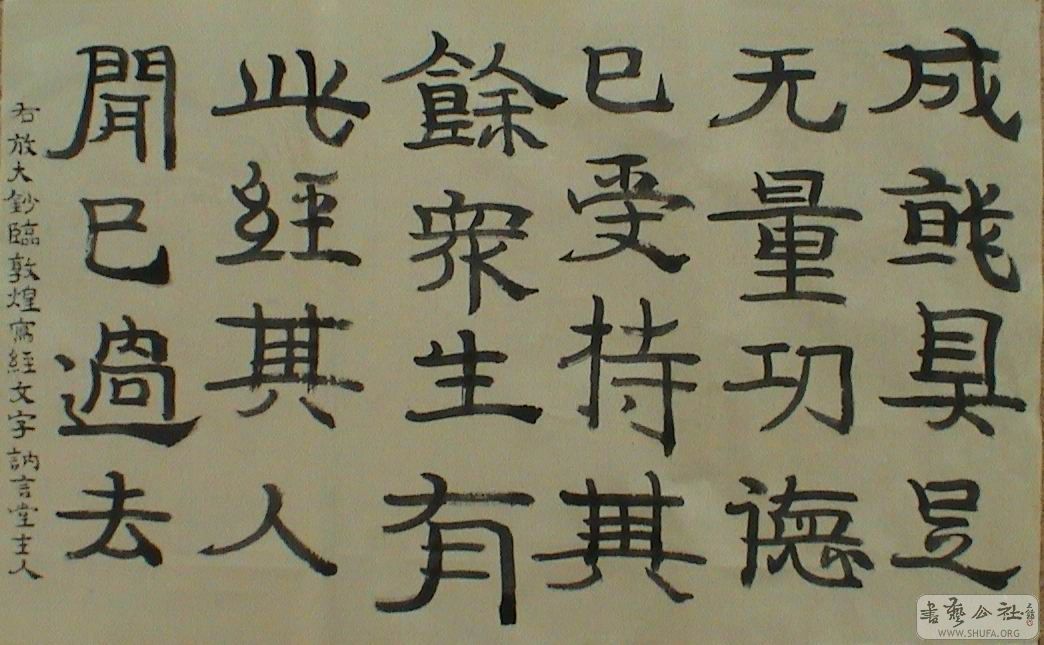 成就具足
无量功德
已受持其
餘眾生有
此經其人
聞已過去
右放大鈔臨敦煌寫經文字訥言堂主人
書藝公社
WWW.SHUFA.ORG